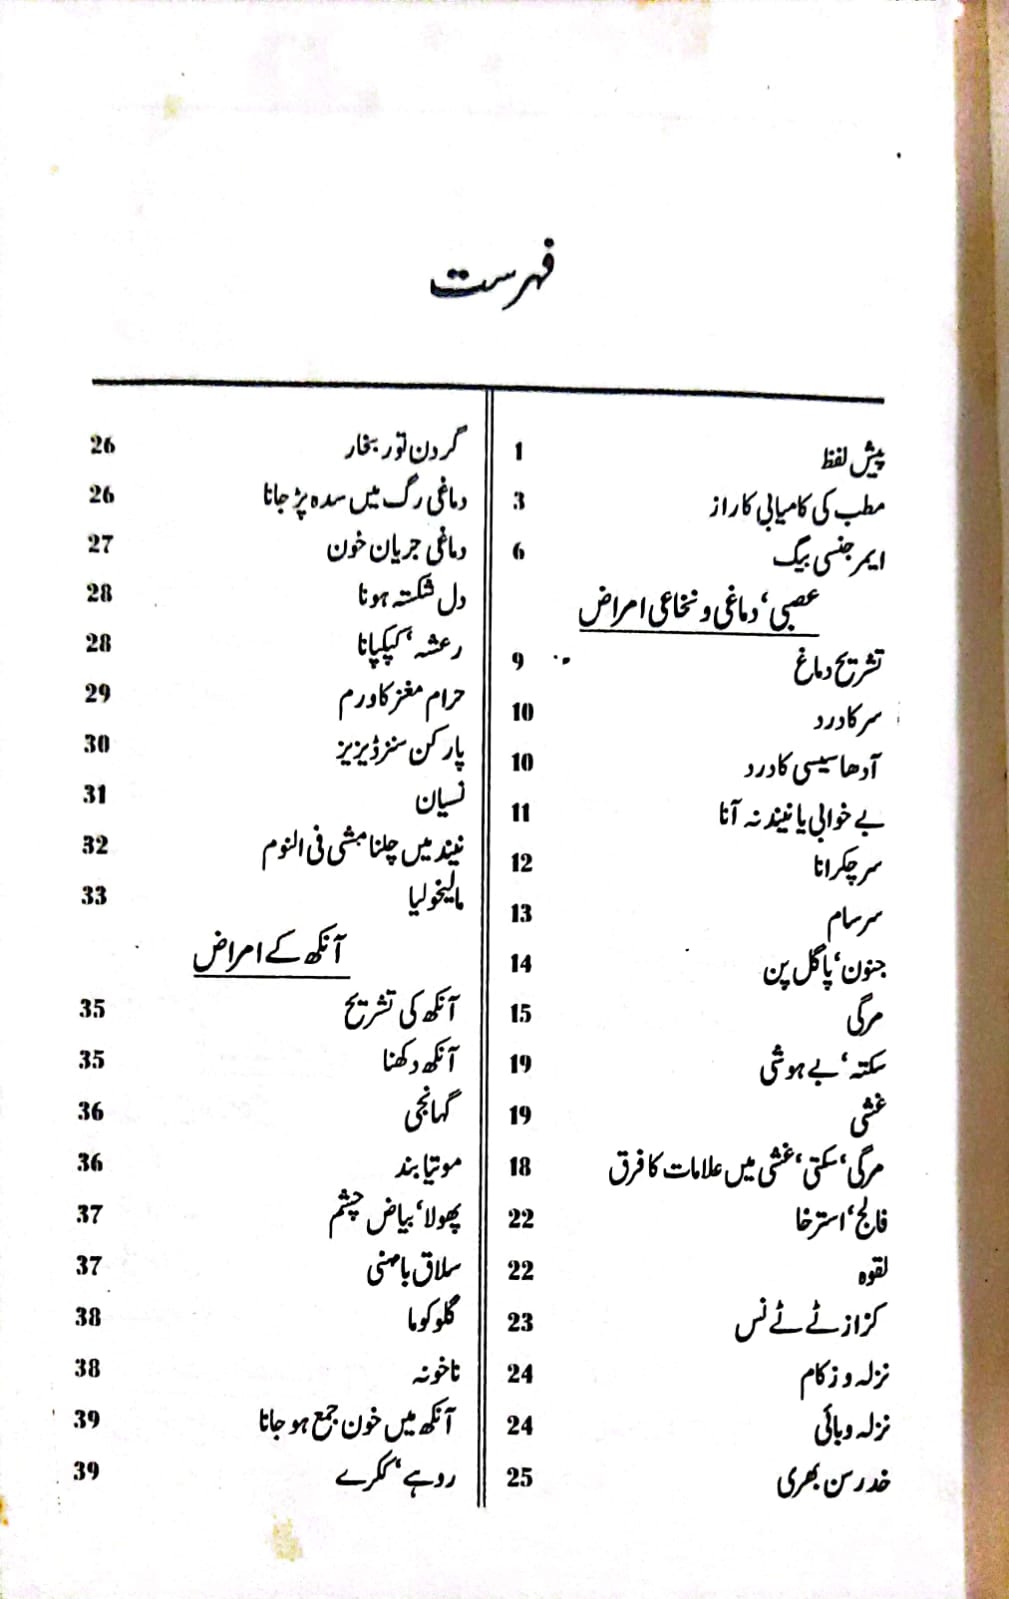 فہرست
پیش لفظ 1
مطب کی کامیابی کا راز 3
ایمرجنسی بیگ 6
عصبی‘ دماغی و نخاعی امراض
تشریح دماغ 9
سر کا درد 10
آدھا سیسی کا درد 10
بے خوابی یا نیند نہ آنا 11
سر چکرانا 12
سر سام 13
جنون‘ پاگل پن 14
مرگی 15
سکتہ‘ بے ہوشی 19
غشی 19
مرگی‘ سکتی‘ غشی میں علامات کا فرق 18
فالج‘ استرخا 22
لقوہ 22
کزاز ٹے ٹے نس 23
نزلہ و زکام 24
نزلہ وبائی 24
خدر سن بھری 25
گردن توڑ بخار 26
دماغی رگ میں سدہ پڑ جانا 26
دماغی جریان خون 27
دل شکستہ ہونا 28
رعشہ‘ کپکپانا 28
حرام مغز کا ورم 29
پارکن سنز ڈیزیز 30
نسیان 31
نیند میں چلنا مشی فی النوم 32
مالیخولیا 33
آنکھ کے امراض
آنکھ کی تشریح 35
آنکھ دکھنا 35
گہانجی 36
موتیا بند 36
پھولا‘ بیاض چشم 37
سلاق بامنی 37
گلوکوما 38
ناخونہ 38
آنکھ میں خون جمع ہو جانا 39
روہے‘ ککرے 39